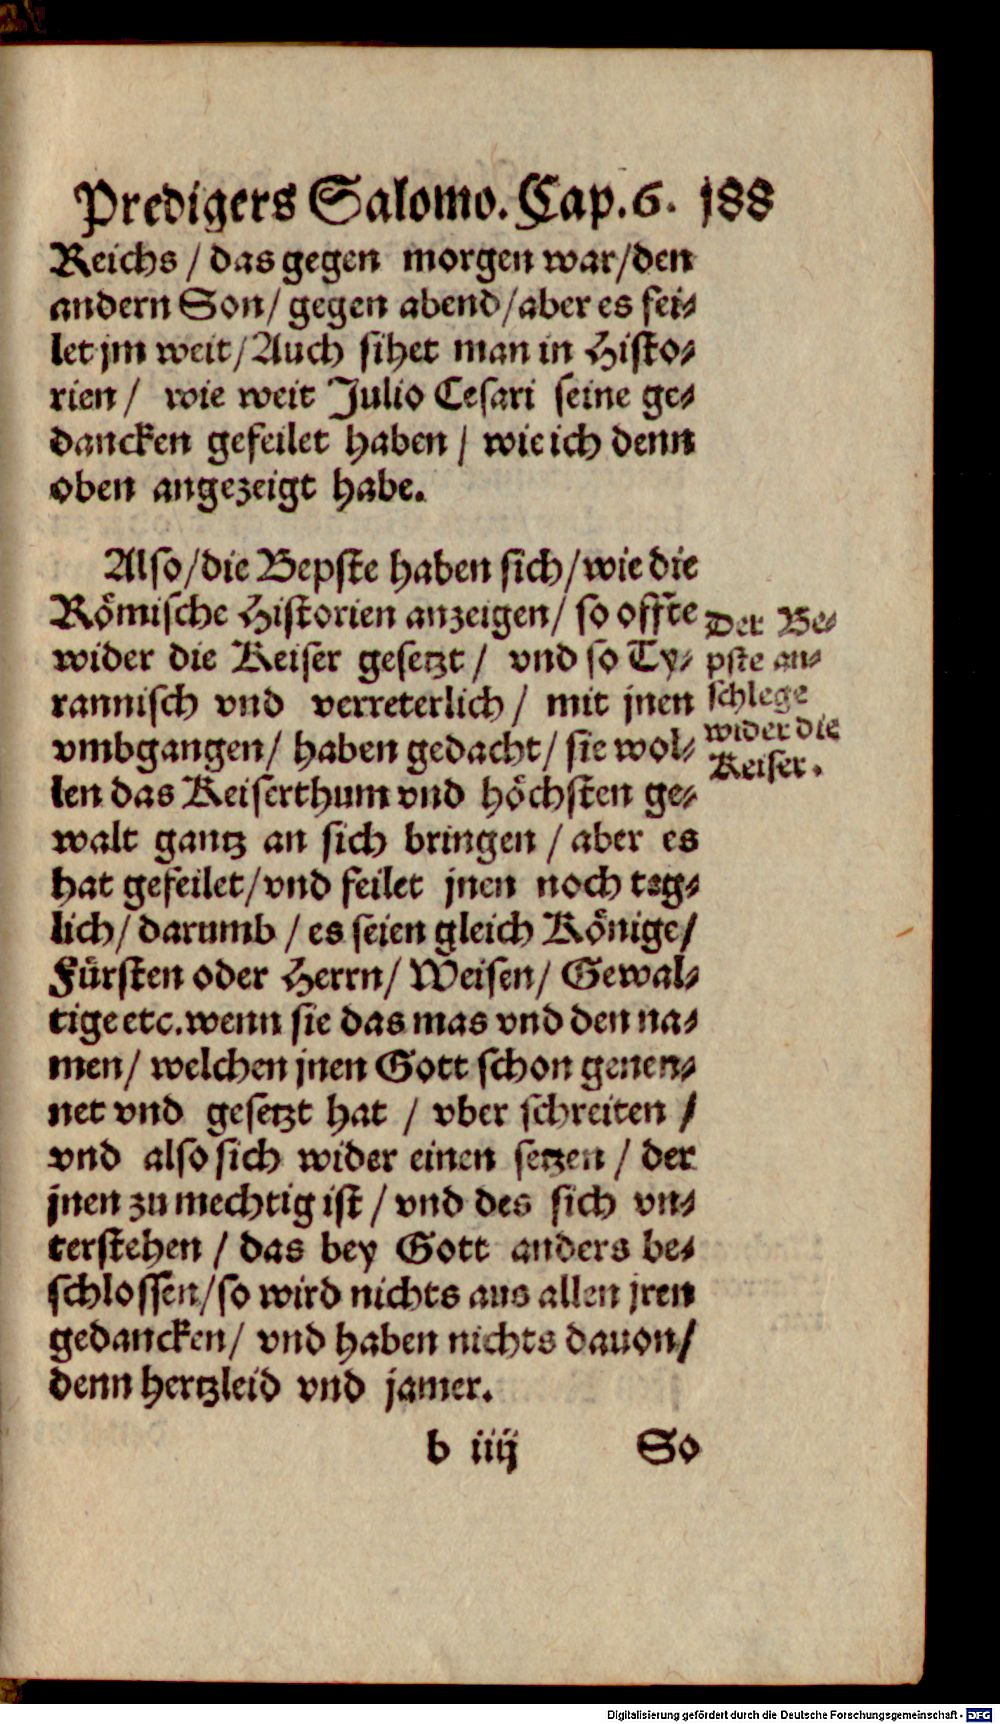 Predigers Salomo. Cap. 6. 188
Reichs / das gegen morgen war / den
andern Son / gegen abend / aber es fei-
let jm weit / Auch sihet man in Histo-
rien / wie weit Julio Cesari seine ge-
dancken gefeilet haben / wie ich denn
oben angezeigt habe.
Also / die Bepste haben sich / wie die
Römische Historien anzeigen / so offte
wider die Keiser gesetzt / vnd so Ty-
rannisch vnd verreterlich / mit jnen
vmbgangen / haben gedacht / sie wol-
len das Keiserthum vnd höchsten ge-
walt gantz an sich bringen / aber es
hat gefeilet / vnd feilet jnen noch teg-
lich / darumb / es seien gleich Könige /
Fürsten oder Herrn / Weisen / Gewal-
tige etc. wenn sie das mas vnd den na-
men / welchen jnen Gott schon genen-
net vnd gesetzt hat / vber schreiten /
vnd also sich wider einen setzen / der
jnen zu mechtig ist / vnd des sich vn-
terstehen / das bey Gott anders be-
schlossen / so wird nichts aus allen jren
gedancken / vnd haben nichts dauon /
denn hertzleid vnd jamer.
Der Be-
pste an-
schlege
wider die
Keiser.
b iiij So
Digitalisierung gefördert durch die Deutsche Forschungsgemeinschaft - DFG